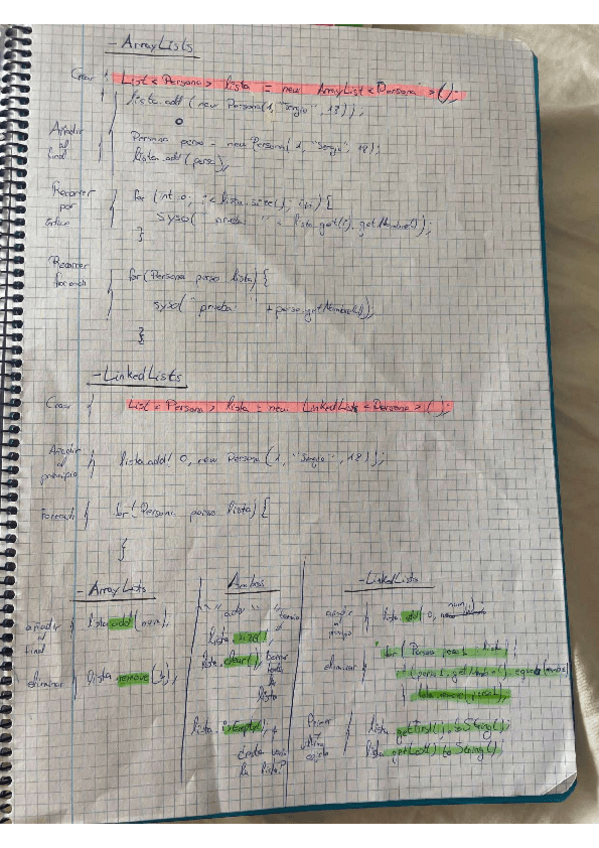 - ArrayLists
Crear { List<Persona> lista = new ArrayList<Persona>();
lista.add (new Persona(1, "Sergio", 18));
o
Añadir al final { Persona perso = new Persona( 1, "Sergio", 18);
lista.add (perso);
Recorrer por { for (int 0; i < lista.size(); i++) {
syso(" prueba " + lista.get(i).getNombre());
}
Recorrer foreach { for (Persona perso lista) {
syso(" prueba " + perso.getNombre());
}
- LinkedLists
Crear { List<Persona> lista = new LinkedLists<Persona>();
Añadir al principio { lista.add( 0, new Persona (1, "Sergio", 18));
Foreach { for ( Persona perso lista) {
}
- ArrayLists
añadir al final { lista.add(num);
eliminar { lista.remove( );
Ambas
lista.size()
lista.clear(); borrar toda la lista
lista.isEmpty();
Está vacía la lista?
- LinkedLists
añadir al { lista.add(0, num);
eliminar { for ( Persona
lista.remove(
Primer lista.getFirst().toString();
lista.getLast().toString();